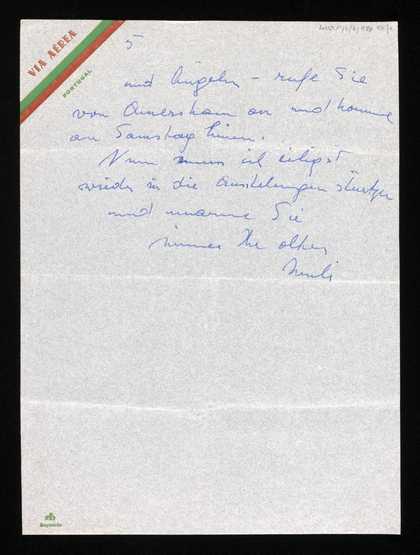 VIA AÉREA
PORTUGAL
5
und Angeln – rufe Sie
von Amersham an und komme
am Samstag hinein.
Nun muss ich eiligst
wieder in die Ausstellungen stürzen
und umarme Sie
immer Ihr alter